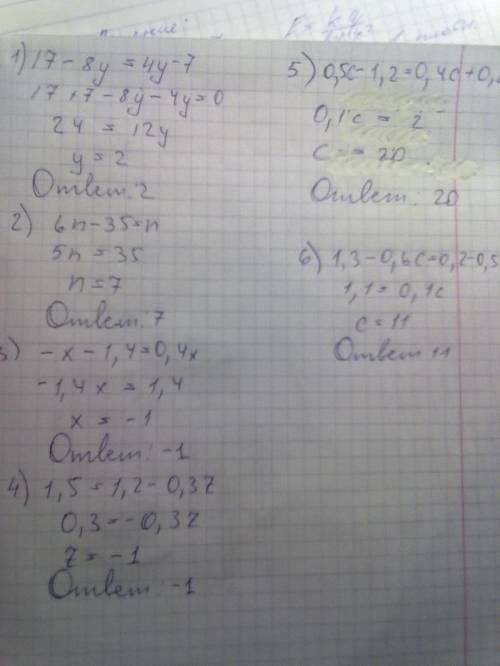 1) 17 - 8y = 4y - 7
17 + 7 - 8y - 4y = 0
24 = 12y
y = 2
Ответ: 2
2) 6n - 35 = n
5n = 35
n = 7
Ответ: 7
3) -x - 1,4 = 0,4x
-1,4x = 1,4
x = -1
Ответ: -1
4) 1,5 = 1,2 - 0,3z
0,3 = -0,3z
z = -1
Ответ: -1
5) 0,5c - 1,2 = 0,4c + 0,
0,1c = 2
c = 20
Ответ: 20
6) 1,3 - 0,6c = 0,2 - 0,5
1,1 = 0,1c
c = 11
Ответ 11